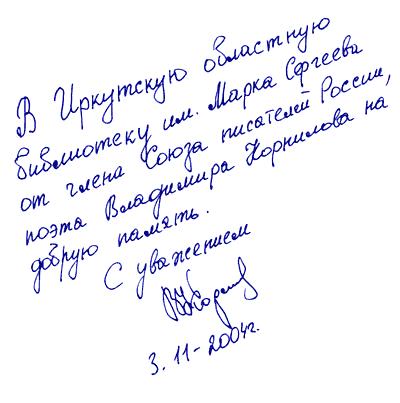 В Иркутскую областную
библиотеку им. Марка Сергеева
от члена Союза писателей России,
поэта Владимира Корнилова на
добрую память.
С уважением
3.11-2004г.